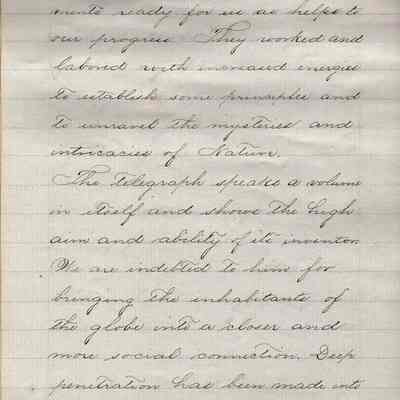 ments ready for us as helps to
our progress. They worked and
labored with increased energies
to establish some principles and
to unravel the mysteries and
intricacies of Nature.
The telegraph speaks a volume
in itself and shows the high
aim and ability of its inventor.
We are indebted to him for
bringing the inhabitants of
the globe into a closer and
more social connection. Deep
penetration has been made into